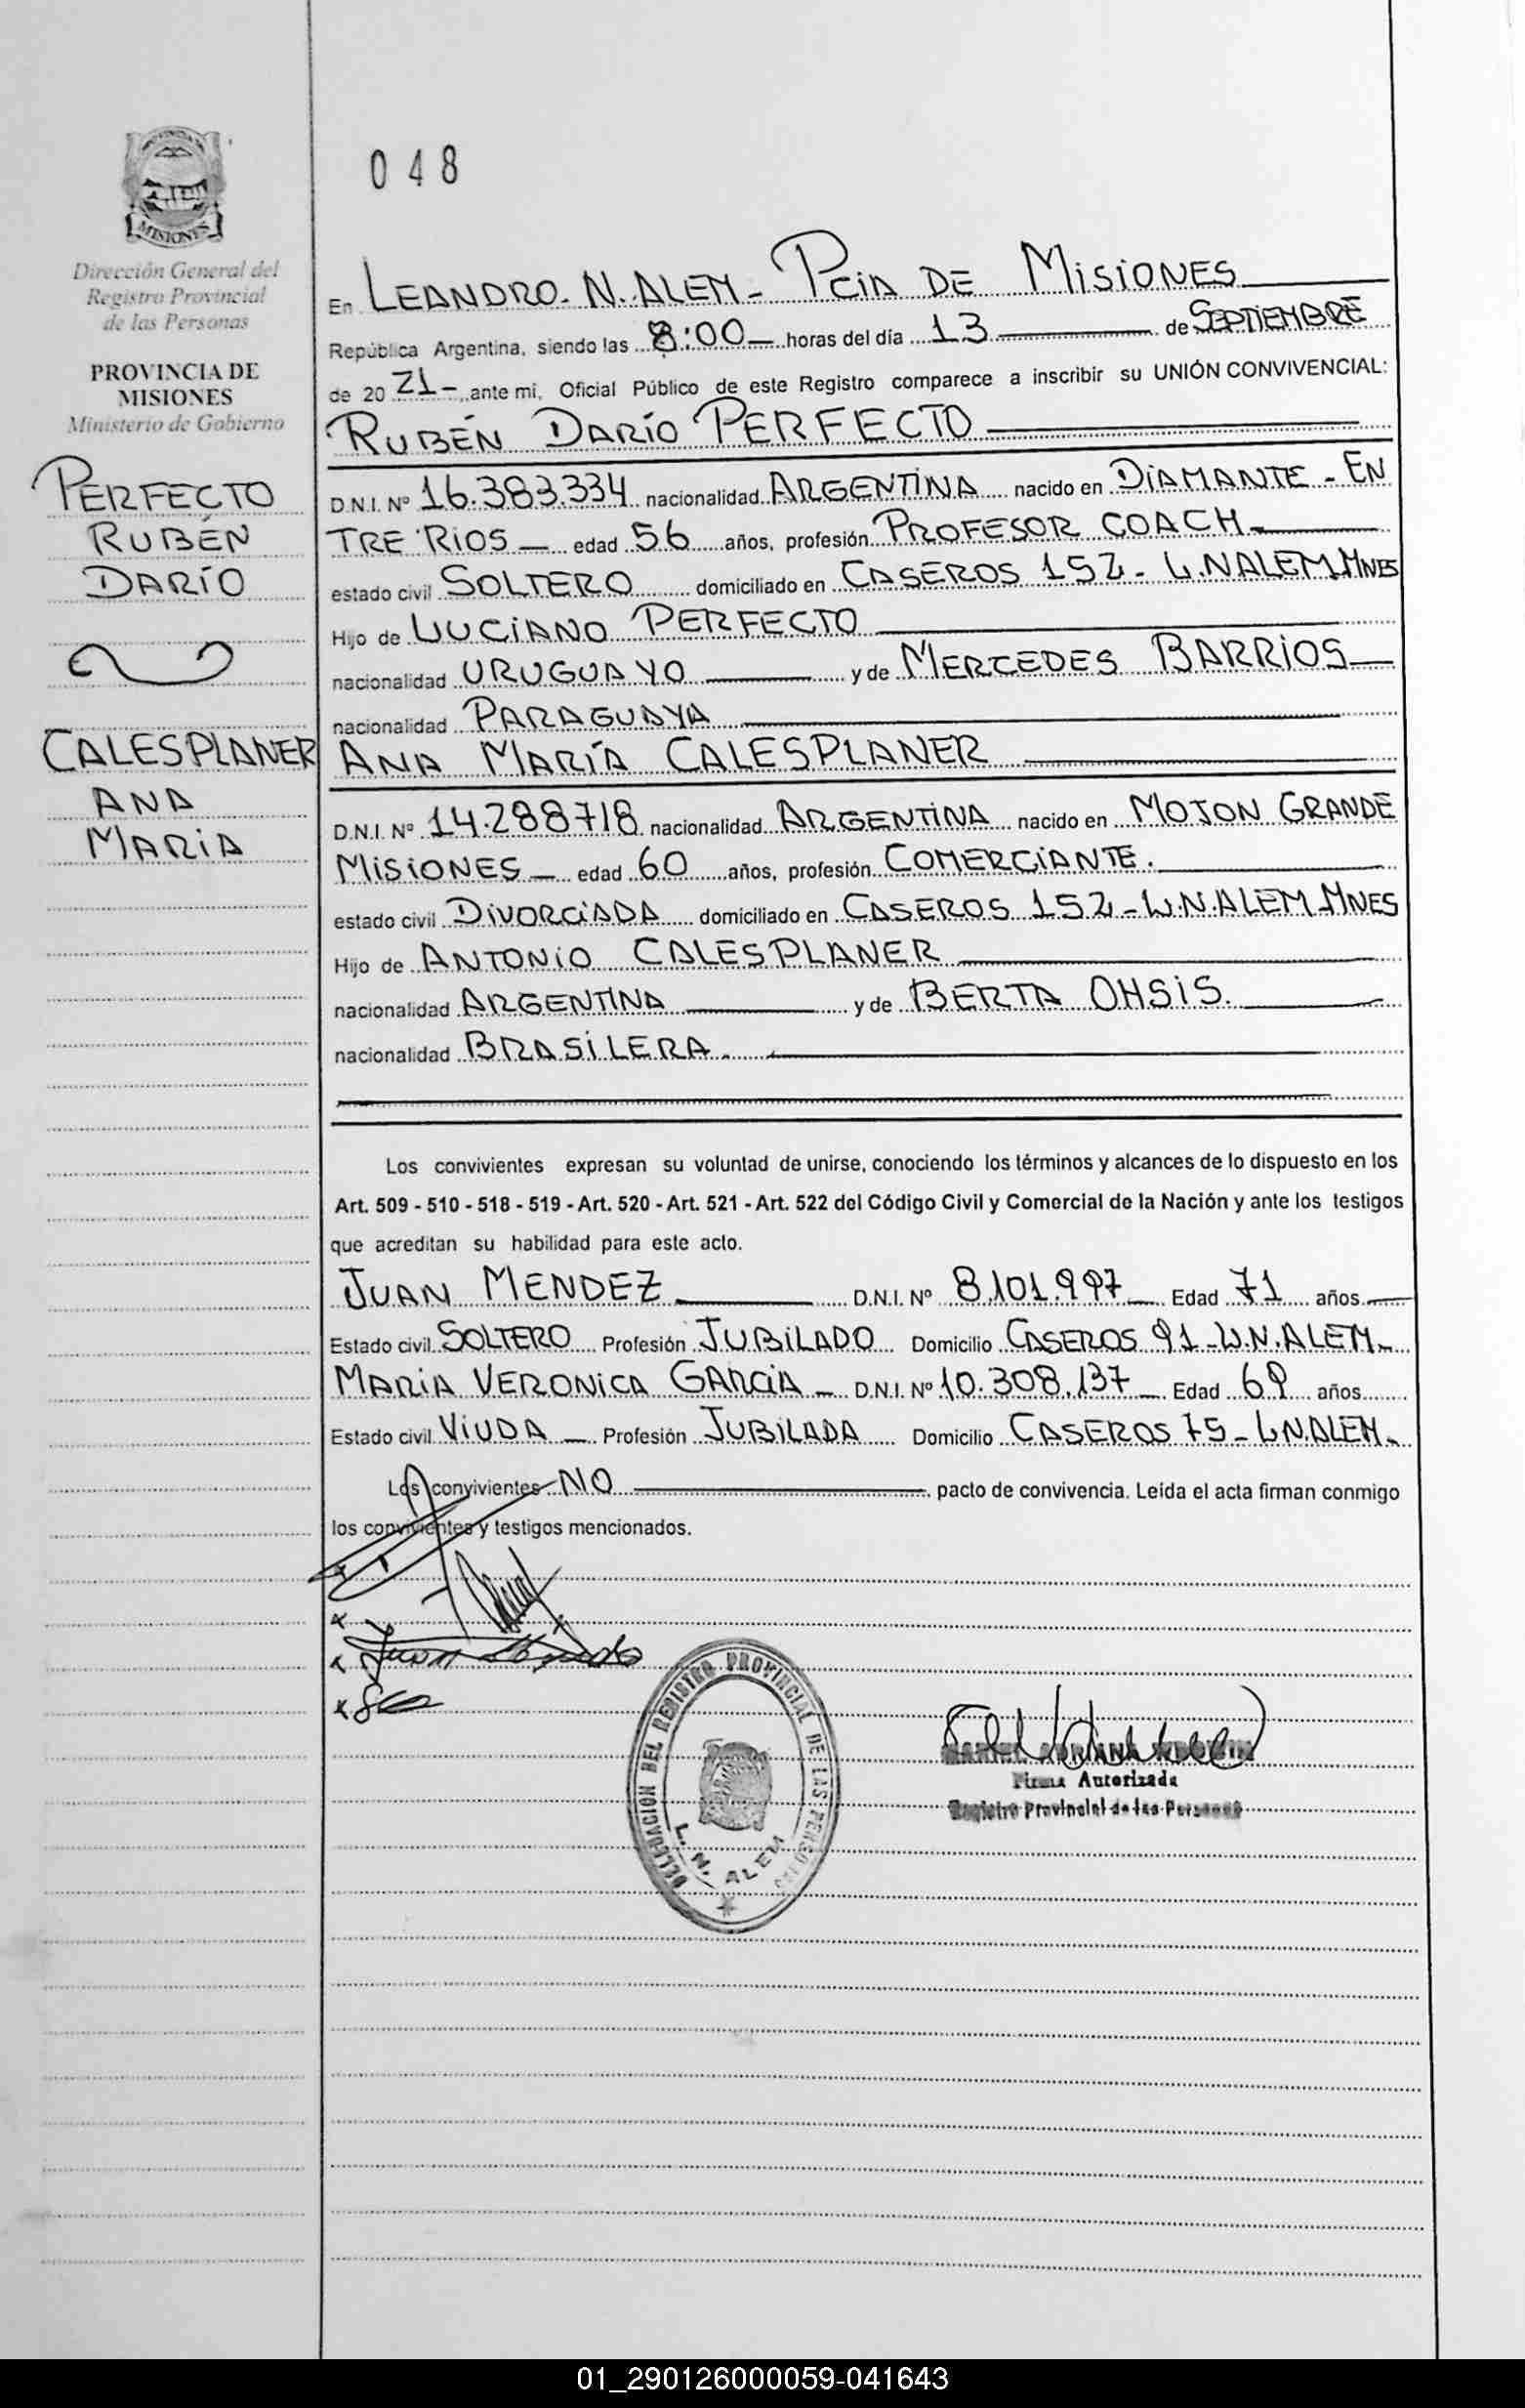 MISIONES
Dirección General del
Registro Provincial
de las Personas
PROVINCIA DE
MISIONES
Ministerio de Gobierno
PERFECTO
RUBÉN
DARÍO
CALESPLANER
ANA
MARIA
048
En LEANDRO. N. ALEM - PCIA DE MISIONES
República Argentina, siendo las 8:00 horas del día 13 de SEPTIEMBRE
de 20 21 - ante mi, Oficial Público de este Registro comparece a inscribir su UNIÓN CONVIVENCIAL:
RUBÉN DARÍO PERFECTO
D.N.I. Nº 16.383.334 nacionalidad ARGENTINA nacido en DIAMANTE - EN
TRE RIOS edad 56 años, profesión PROFESOR COACH
estado civil SOLTERO domiciliado en CASEROS 152 - L.N ALEM.MNES
Hijo de LUCIANO PERFECTO
nacionalidad URUGUAYO y de MERCEDES BARRIOS
nacionalidad PARAGUAYA
ANA MARÍA CALESPLANER
D.N.I. Nº 14.288718 nacionalidad ARGENTINA nacido en MOJON GRANDE
MISIONES edad 60 años, profesión COMERCIANTE.
estado civil DIVORCIADA domiciliado en CASEROS 152 - L.N.ALEM.MNES
Hijo de ANTONIO CALESPLANER
nacionalidad ARGENTINA y de BERTA OHSIS.
nacionalidad BRASILERA.
Los convivientes expresan su voluntad de unirse, conociendo los términos y alcances de lo dispuesto en los
Art. 509 - 510 - 518 - 519 - Art. 520 - Art. 521 - Art. 522 del Código Civil y Comercial de la Nación y ante los testigos
que acreditan su habilidad para este acto.
JUAN MENDEZ D.N.I. Nº 8.101.997 Edad 71 años
Estado civil SOLTERO Profesión JUBILADO Domicilio CASEROS 91 - L.N.ALEM
MARIA VERONICA GARCIA - D.N.I. Nº 10.308.137 Edad 69 años
Estado civil VIUDA Profesión JUBILADA Domicilio CASEROS 75 - L.N.ALEM
Los convivientes NO pacto de convivencia. Leída el acta firman conmigo
los convivientes y testigos mencionados.
DELEGACION DEL REGISTRO PROVINCIAL DE LAS PERSONAS
L. N. ALEM
Firma Autorizada
Registro Provincial de las Personas
01_290126000059-041643